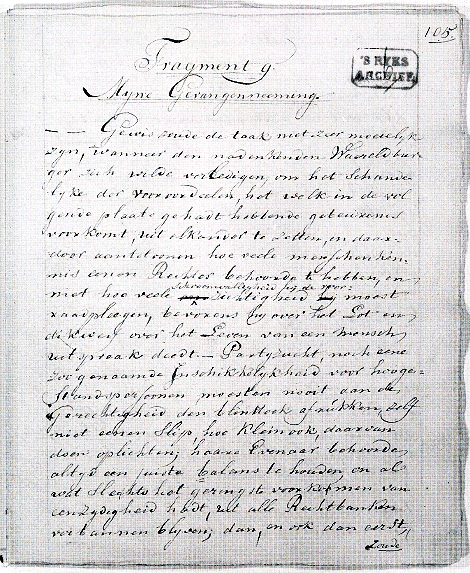 105.
'S RYKS
ARCHIEF
Fragment 9.
Myne Gevangenneeming.
— — Gewis zoude de taak niet zeer moeielyk
zyn, wanneer den nadenkenden Waereldbur-
ger zich wilde verledigen, om het schande-
lyke der vooroordeelen, het welk in de vol
gende plaats gehadt hebbende gebeurenis
voorkomt, uit elkander te zetten, en daar-
door aantetoonen hoe veele menschenken-
nis eenen Rechter behoorde te hebben, en
met hoe veele schroomvalligheid hy de voor-
zichtigheid moest
raadpleegen, bevorens hy over het Lot en
dikwerf over het Leven van eenen Mensch,
uitspraak deedt. — Partyzucht, noch eene
zoogenaamde Inschikkelykheid voor hooge-
Standspersoonen moesten nooit aan de
Gerechtigheid den blinddoek afrukken, zelf
niet eenen Slip, hoe klein ook, daarvan
doen oplichten; haare Evenaar behoorde
altyd een juiste balans te houden, en al
wat Slegts het geringste voorkomen van
eenzydigheid hadt, uit alle Rechtbanken
verbannen blyven; dan, en ook dan eerst,
zoude